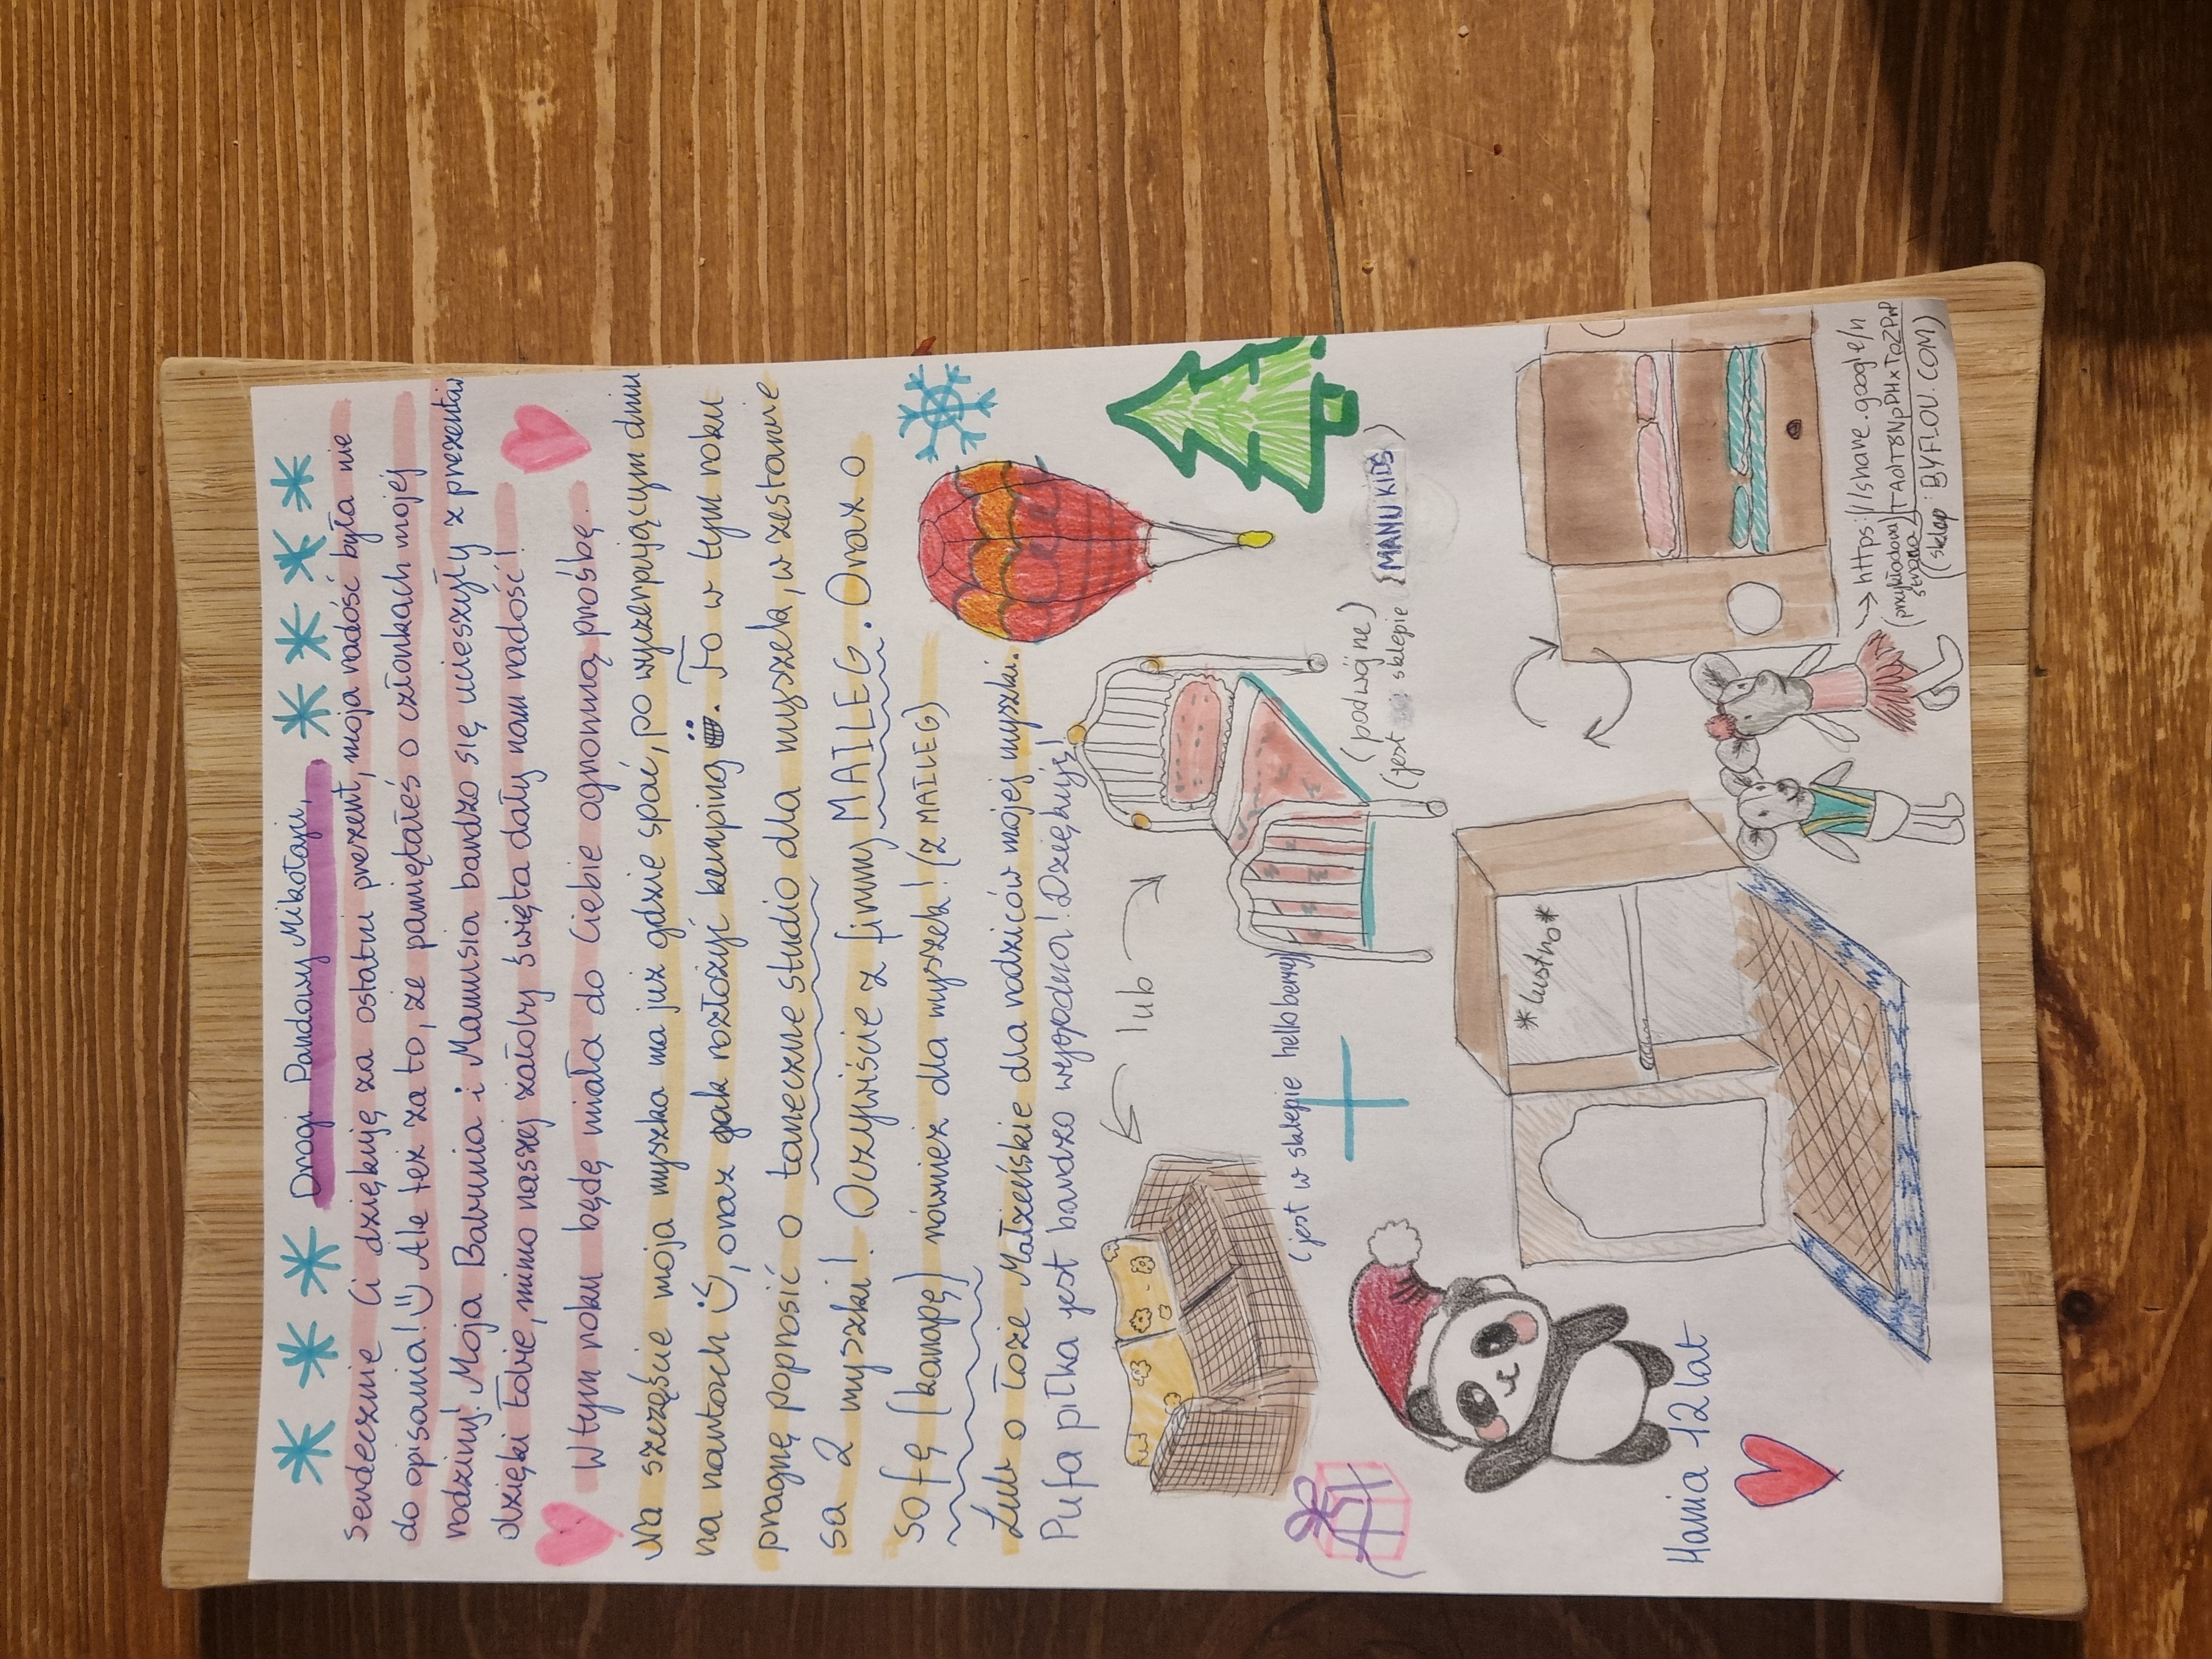 Drogi Pandowy Mikołaju,
serdecznie Ci dziękuję za ostatni prezent, moja radość była nie
do opisania! Ale też za to, że pamiętałeś o członkach mojej
rodziny! Moja Babunia i Mamusia bardzo się ucieszyły z prezentów
dzięki Tobie, mimo naszej żałoby Święta dały nam radość!
W tym roku będę miała do Ciebie ogromną prośbę.
Na szczęście moja myszka ma już gdzie spać, po wyczerpującym dniu
na nartach, oraz jak rozłożyć kemping. To w tym roku
pragnę poprosić o taneczne studio dla myszek, w zestawie
są 2 myszki! Oczywiście z firmy MAILEG. Oraz o
Sofę (kanapę) również dla myszek! (z MAILEG)
Lub o łoże Małżeńskie dla rodziców mojej myszki.
Pufa piłka jest bardzo wygodna! Dziękuję!
lub
(podwójne)
(jest w sklepie MANUKIDS)
(jest w sklepie helloberry)
*lustro*
→ https://share.google/n
(przykładowa
strona)
(sklep: BYFLOU.COM)
Hania 12 lat